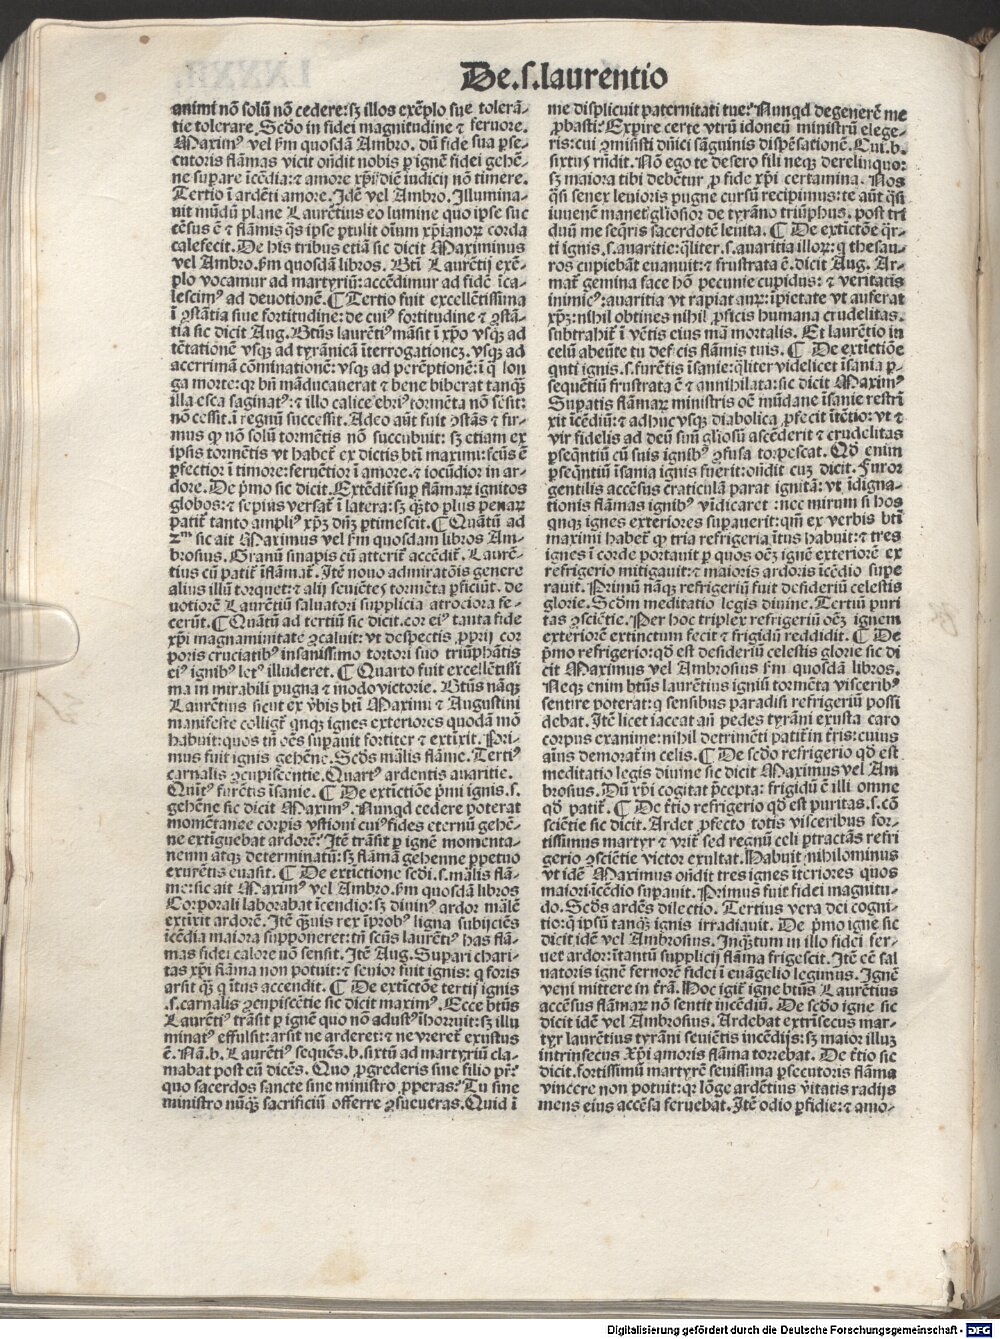 De.s.laurentio
animi nō solū nō cedere:sꝫ illos exēplo sue tolerā-
tie tolerare. Scd̄o in fidei magnitudine ⁊ feruore.
Maximꝰ vel ẜm quosdā Ambro. dū fide sua ꝑse-
cutoris flāmas vicit on̄dit nobis ꝑ ignē fidei gehē-
ne suꝑare īcēdia:⁊ amore xp̄i diē iudicij nō timere.
Tertio ī ardēti amore. Idē vel Ambro. Illumina-
uit mūdū plane Laurētius eo lumine quo ipse suc
cēsus ē ⁊ flāmis qs̄ ipse ꝑtulit oīum xp̄ianoꝝ corda
calefecit. De his tribus etiā sic dicit Maximinus
vel Ambro.ẜm quosdā libros. Bt̄i Laurētij exē-
plo vocamur ad martyriū:accēdimur ad fidē īca-
lescimꝰ ad deuotionē.¶Tertio fuit excellētissima
ī ꝯstātia siue fortitudine:de cuiꝰ fortitudine ⁊ ꝯstā-
tia sic dicit Aug. Bt̄us laurētiꝰ māsit ī xp̄o vsqꝫ ad
tētationē vsqꝫ ad tyrānicā īterrogationeꝫ.vsqꝫ ad
acerrimā cōminationē:vsqꝫ ad perēptionē:ī q̄ lon
ga morte:qꝛ bn̄ māducauerat ⁊ bene biberat tanqꝫ̄
illa esca saginatꝰ:⁊ illo calice ebriꝰ tormēta nō sēsit:
nō cessit.ī regnū successit.Adeo aūt fuit ꝯstās ⁊ fir-
mus ꝙ nō solū tormētis nō succubuit: sꝫ etiam ex
ip̄sis tormētis vt habet̄ ex dictis bt̄i maximi:scūs ē
ꝑfectior ī timore:feruētior ī amore.⁊ iocūdior in ar-
dore.De p̄mo sic dicit.Extēdit̄ suꝑ flāmaꝝ ignitos
globos:⁊ sepius versat̄ ī latera:sꝫ qꝫ̄to plus penaꝝ
patit̄ tanto ampliꝰ xp̄ꝫ dn̄ꝫ ꝑtimescit.¶Quātū ad
2ᵐ sic ait Maximus vel ẜm quosdam libros Am-
brosius.Granū sinapis cū atterit̄ accēdit̄. Laurē-
tius cū patit̄ īflāmat̄. Itē nouo admiratōis genere
alius illū torquet:⁊ alij seuiētes tormēta ꝑficiūt. de
uotiorē Laurētiū saluatori supplicia atrociora fe-
cerūt.¶Quātū ad tertiū sic dicit.cor eiꝰ tanta fide
xp̄i magnaminitate ꝯcaluit: vt despectis ꝓprij cor
poris cruciatibꝰ insanissimo tortori suo triūphātis
eiꝰ ignibꝰ letꝰ illuderet.¶Quarto fuit excellētissi
ma in mirabili pugna ⁊ modo victorie. Bt̄us nāqꝫ
Laurētius sicut ex v̄bis bt̄i Maximi ⁊ Augustini
manifeste colligit̄ qnqꝫ ignes exteriores quodā mō
habuit:quos tn̄ oēs suꝑauit fortiter ⁊ extīxit.Pri-
mus fuit ignis gehēne.Scd̄s mālis flāme. Tertiꝰ
carnalis ꝯcupiscentie.Quartꝰ ardentis auaritie.
Quītꝰ furētis īsanie.¶De extīctiōe p̄mi ignis.s.
gehēne sic dicit Maximꝰ. Nunqd cedere poterat
momētanee corꝑis vstioni cuiꝰ fides eternū gehē-
ne extīguebat ardorē: Itē trāsit ꝑ ignē momenta-
neum atqꝫ determinatū:sꝫ flāmā gehenne ꝑpetuo
exurētis euasit.¶De extīctione scd̄i.s.mālis flā-
me:sic ait Maximꝰ vel Ambro.ẜm quosdā libros
Corporali laborabat īcendio:sꝫ diuinꝰ ardor mālē
extīxit ardorē. Itē qꝫ̄uis rex īprobꝰ ligna subijciēs
icēdia maiora supponeret:tn̄ scūs laurētiꝰ has flā-
mas fidei calore nō sensit.Itē Aug.Suꝑari chari-
tas xp̄i flāma non potuit:⁊ seuior fuit ignis: q̄ foris
arsit qꝫ̄ q ītus accendit.¶De extictōe tertij ignis
.s.carnalis ꝯcupiscētie sic dicit maximꝰ. Ecce bt̄us
Laurētiꝰ trāsit ꝑ ignē quo nō adustꝰ īhorruit:sꝫ illu
minatꝰ effulsit:arsit ne arderet:⁊ ne vreret̄ exustus
ē. Nā.b.Laurētiꝰ sequēs.b.sixtū ad martyriū cla-
mabat post eū dicēs. Quo ꝓgrederis sine filio pr̄:
quo sacerdos sancte sine ministro ꝓperas: Tu sine
ministro nūqꝫ̄ sacrificiū offerre ꝯsueueras.Quid ī
me displicuit paternitati tue: Nunqd degenerē me
ꝓbasti: Expire certe vtrū idoneū ministrū elege-
ris:cui ꝯmisisti dn̄ici sāguinis dispēsationē.Cui.b.
sixtus rn̄dit. Nō ego te desero fili neqꝫ derelinquor:
sꝫ maiora tibi debētur ꝓ fide xp̄i certamina. Nos
qs̄i senex lenioris pugne cursū recipimus:te aūt qs̄i
iuuenē manet gl̄iosior de tyrāno triūphus. post tri
duū me seqr̄is sacerdotē leuita.¶De extīctōe qr̄-
ti ignis.s.auaritie:qliter.s.auaritia illoꝝ:q thesau-
ros cupiebāt euanuit:⁊ frustrata ē.dicit Aug. Ar-
mat̄ gemina face hō pecunie cupidus: ⁊ veritatis
inimicꝰ:auaritia vt rapiat auꝝ:īpietate vt auferat
xp̄ꝫ:nihil obtines nihil ꝓficis humana crudelitas.
subtrahit̄ ī vētis eius mā mortalis. Et laurētio in
celū abeūte tu deficis flāmis tuis.¶De extictiōe
qnti ignis.s.furētis īsanie:qliter videlicet īsania ꝑ-
sequētiū frustrata ē ⁊ annihilata:sic dicit Maximꝰ
Suꝑatis flāmaꝝ ministris oē mūdane īsanie restrī
xit īcēdiū:⁊ adhuc vsqꝫ diabolica ꝓfecit ītētio: vt ⁊
vir fidelis ad deū suū gl̄iosū ascēderit ⁊ crudelitas
ꝑseq̄ntiū cū suis ignibꝰ ꝯfusa torpescat. Qd̄ enim
ꝑseq̄ntiū īsania ignis fuerit:on̄dit cuꝫ dicit. Furor
gentilis accēsus craticulā parat ignitā: vt īdigna-
tionis flāmas ignibꝰ vīdicaret :nec mirum si hos
qnqꝫ ignes exteriores suꝑauerit:qm̄ ex verbis bt̄i
maximi habet̄ ꝙ tria refrigeria ītus habuit:⁊ tres
ignes ī corde portauit ꝑ quos oēꝫ ignē exteriorē ex
refrigerio mitigauit:⁊ maioris ardoris īcēdio supe
rauit. Primū nāqꝫ refrigeriū fuit desideriū celestis
glorie. Scd̄m meditatio legis diuine. Tertiū puri
tas ꝯsciētie. Per hoc triplex refrigeriū oēꝫ ignem
exteriorē extinctum fecit ⁊ frigidū reddidit. ¶De
p̄mo refrigerio:qd̄ est desideriū celestis glorie sic di
cit Maximus vel Ambrosius ẜm quosdā libros.
Neqꝫ enim bt̄us laurētius igniū tormēta visceribꝰ
sentire poterat:q sensibus paradisi refrigeriū possi
debat. Itē licet iaceat an̄ pedes tyrāni exusta caro
corpus exanime:nihil detrimēti patit̄ in t̄ris:cuius
aīus demorat̄ in celis.¶De scd̄o refrigerio qd̄ est
meditatio legis diuine sic dicit Maximus vel Am
brosius. Dū xp̄i cogitat p̄cepta: frigidū ē illi omne
qd̄ patit̄. ¶De t̄tio refrigerio qd̄ est puritas.s.cō
sciētie sic dicit. Ardet ꝓfecto totis visceribus for-
tissimus martyr ⁊ vrit̄ sed regnū celi ꝑtractās refri
gerio ꝯsciētie victor exultat.Habuit nihilominus
vt idē Maximus on̄dit tres ignes īteriores quos
maiori īcēdio suꝑauit. Primus fuit fidei magnitu-
do. Scd̄s ardēs dilectio. Tertius vera dei cogni-
tio:q ipsū tanqꝫ̄ ignis irradiauit. De p̄mo igne sic
dicit idē vel Ambrosius. Inqꝫ̄tum in illo fidei fer-
uet ardor:ītantū supplicij flāma frigescit. Itē cē sal
uatoris ignē feruorē fidei ī euāgelio legimus. Ignē
veni mittere in t̄rā. Hoc igit̄ igne bt̄us Laurētius
accēsus flāmaꝝ nō sentit incēdiū. De scd̄o igne sic
dicit idē vel Ambrosius. Ardebat extrīsecus mar-
tyr laurētius tyrāni seuiētis incēdijs:sꝫ maior illuꝫ
intrinsecus Xp̄i amoris flāma torrebat. De t̄tio sic
dicit.fortissimū martyrē seuissima ꝑsecutoris flāma
vincere non potuit:qꝛ lōge ardētius v̄itatis radijs
mens eius accēsa feruebat.Itē odio ꝑfidie:⁊ amo-
Digitalisierung gefördert durch die Deutsche Forschungsgemeinschaft - DFG